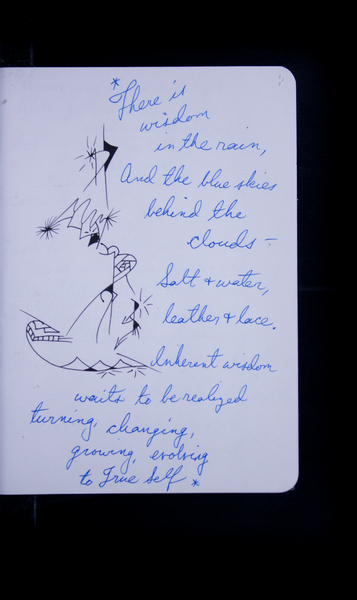 * There is
wisdom
in the rain,
And the blue skies
behind the
clouds –
Salt & water,
leather & lace.
Inherent wisdom
waits to be realized
turning, changing,
growing, evolving
to True Self *